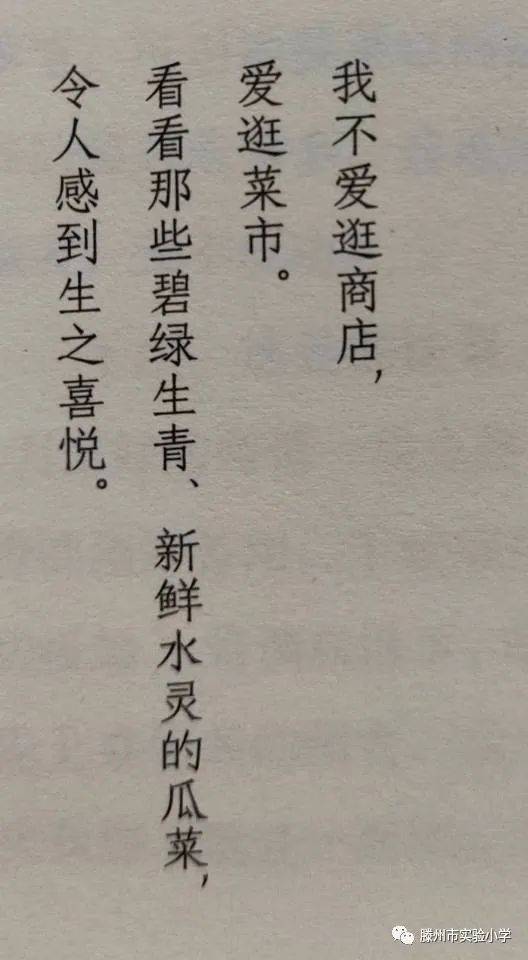 我不爱逛商店，
爱逛菜市。
看看那些碧绿生青、新鲜水灵的瓜菜，
令人感到生之喜悦。
滕州市实验小学